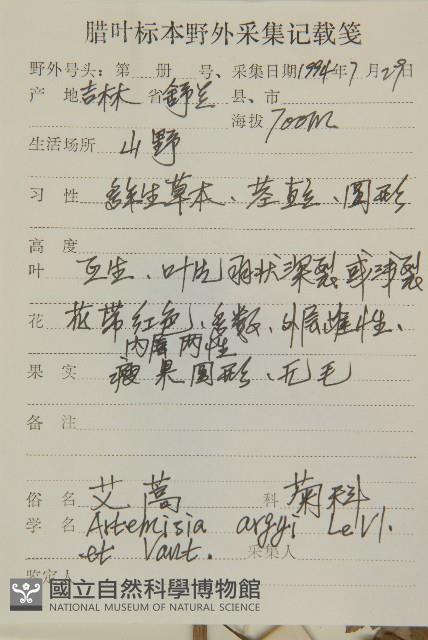 腊叶标本野外采集记载笺
野外号头：第 册 号、采集日期1994年7月29日
产 地吉林 省舒兰 县、市
海拔 700m
生活场所 山野
习 性 多年生草本、茎直立、圆形
高 度
叶 互生、叶片羽状深裂或浅裂
花 花带红色、多数、外层雌性、
内层两性
果 实 瘦果圆形、无毛
备 注
俗 名 艾蒿 科 菊科
学 名 Artemisia argyi Levl.
et Vant. 采集人
鉴定人
國立自然科學博物館
NATIONAL MUSEUM OF NATURAL SCIENCE